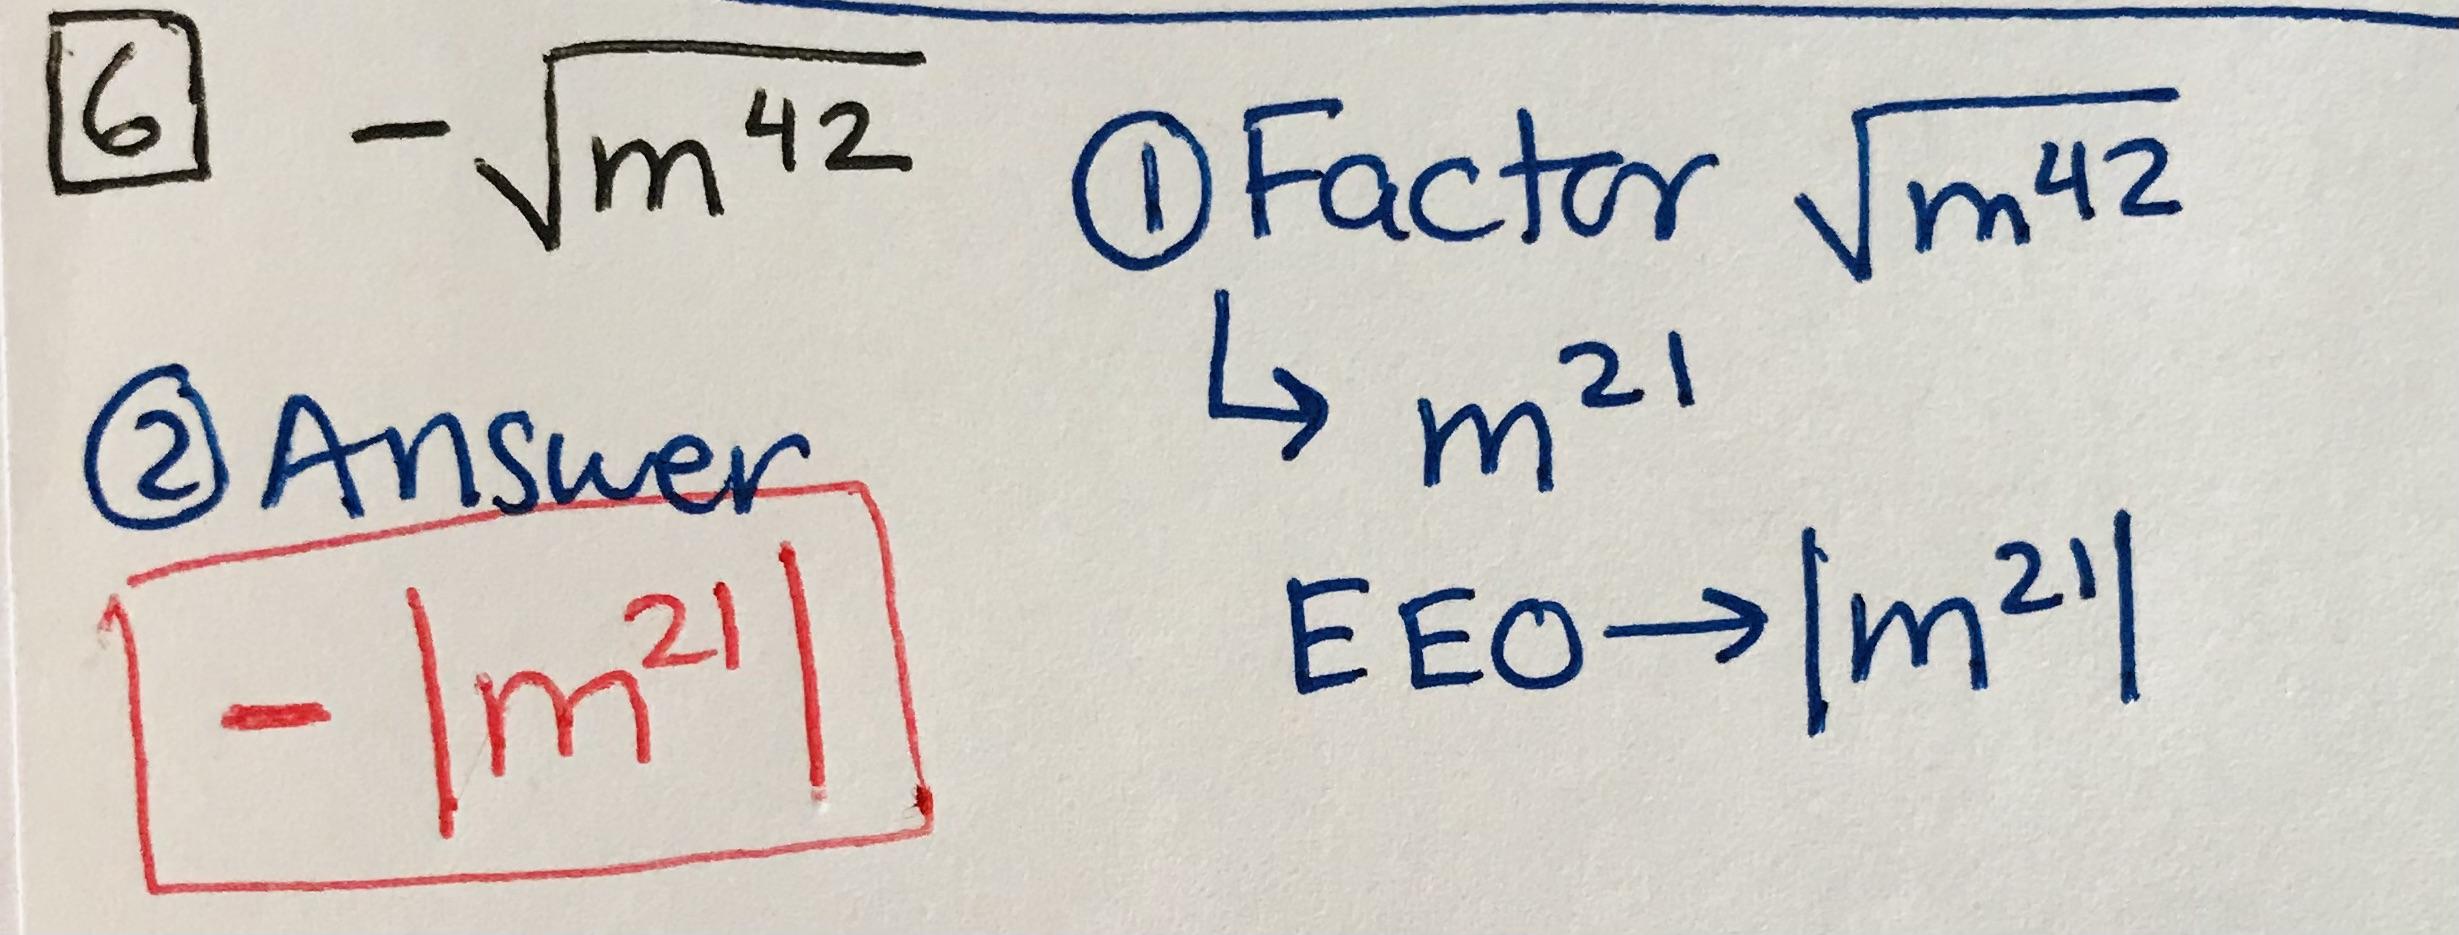 6 -√m⁴²
① Factor √m⁴²
↳ m²¹
EEO→|m²¹|
② Answer
-|m²¹|